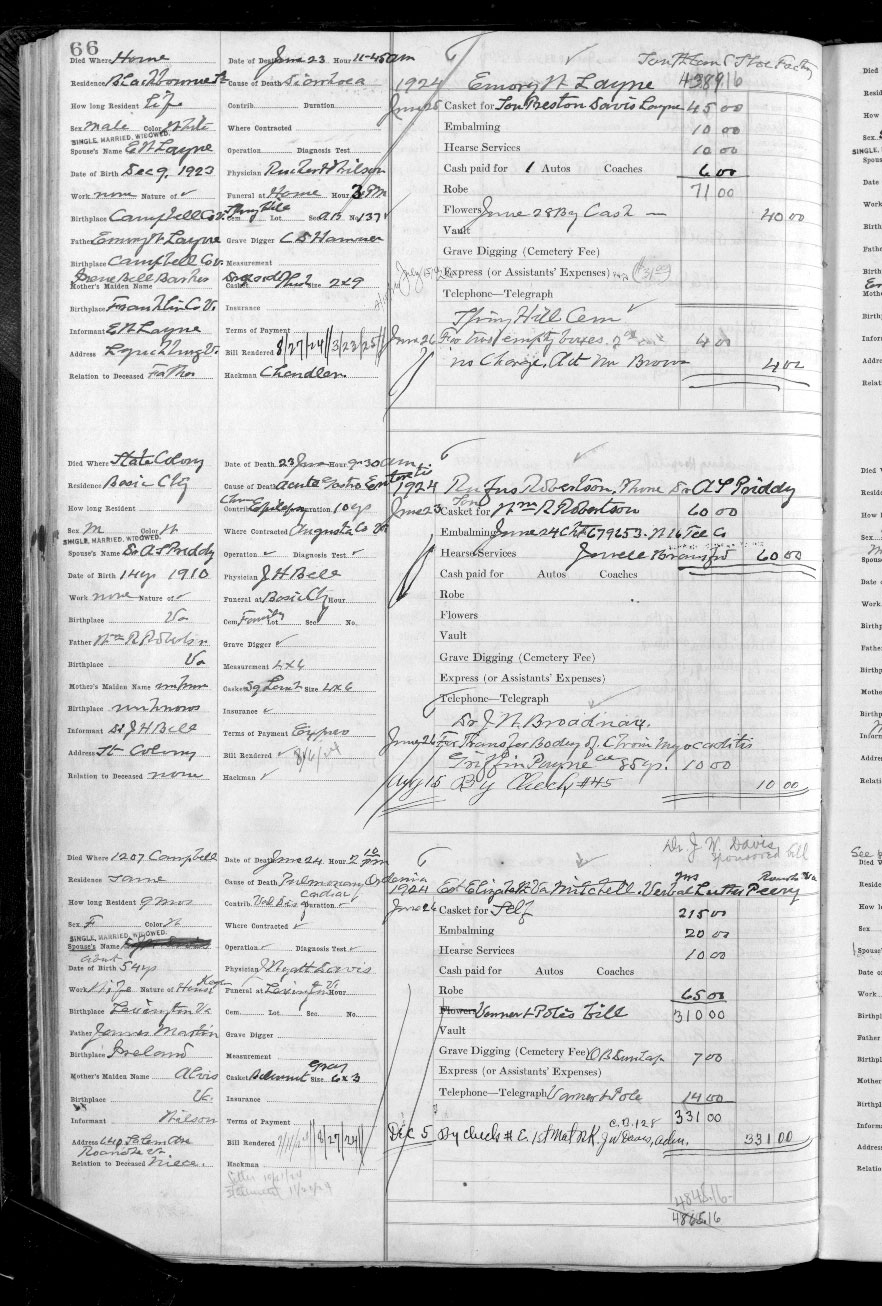 66
Died Where Home
Residence Blackbourne St
How long Resident Life
Sex Male Color White
SINGLE, MARRIED, WIDOWED.
Spouse's Name E H Layne
Date of Birth Dec 9, 1923
Work none Nature of
Birthplace Campbell Co V.
Father Emory H Layne
Birthplace Campbell Co V.
Irene Bell
Mother's Maiden Name
Birthplace Franklin Co V.
Informant E H Layne
Address Lynchburg V.
Relation to Deceased Father
Date of Death June 23 Hour 11-45 am
Cause of Death Diarrhoea
Contrib. Duration
Where Contracted
Operation Diagnosis Test
Physician Wilson
Funeral at Home Hour 3 PM
Spring Hill
Cem. Lot Sec. No. 137
Grave Digger C S Hammer
Measurement
Casket Plush Size 2x9
Insurance
Terms of Payment
Bill Rendered 8/27/24 3/23/25
Hackman Chandler.
Shoe Factory
1924 Emory H Layne 438916
June 25 Casket for Son Preston Davis Layne 45 00
Embalming 10 00
Hearse Services 10 00
Cash paid for 1 Autos Coaches 6 00
Robe 71 00
Flowers June 28 By Cash 40 00
Vault
Grave Digging (Cemetery Fee)
Express (or Assistants' Expenses)
Telephone—Telegraph
Spring Hill Cem
June 26 For two empty boxes. 4 00
no Charge. Act Mr Brown 4 00
Died Where State Colony
Residence Basic City
How long Resident
Sex M Color W
SINGLE, MARRIED, WIDOWED.
Spouse's Name Dr A S Priddy
Date of Birth 14 yr 1910
Work none Nature of
Birthplace Va
Father Wm R Robertson
Birthplace Va
Mother's Maiden Name unknown
Birthplace unknown
Informant Dr J H Bell
Address St Colony
Relation to Deceased none
Date of Death 23 June Hour 9-30 am
Cause of Death Acute Gastro Enteritis
Contrib. Epilepsy Duration 10 yr
Where Contracted Augusta Co Va
Operation Diagnosis Test
Physician J H Bell
Funeral at Basic City Hour
Cem. Family Lot Sec. No.
Grave Digger
Measurement 4x6
Casket Size 4x6
Insurance
Terms of Payment Express
Bill Rendered 8/6/24
Hackman
1924 Rufus Robertson, None Dr A S Priddy
June 23 Casket for Son Wm R Robertson 60 00
Embalming June 24
Hearse Services 60 00
Cash paid for Autos Coaches
Robe
Flowers
Vault
Grave Digging (Cemetery Fee)
Express (or Assistants' Expenses)
Telephone—Telegraph
Dr J N. Broadnax.
June 26 For Transfer Body of Chronic Myocarditis
Griffin Payne 85 yr. 10 00
Aug 15 By Check #45 10 00
Died Where 1207 Campbell
Residence Same
How long Resident 9 mos
Sex F Color W
SINGLE, MARRIED, WIDOWED.
Spouse's Name
about
Date of Birth 54 yr
Work Nature of House Keeper
Birthplace Lexington Va
Father James Martin
Birthplace Ireland
Mother's Maiden Name Alvis
Birthplace Va.
Informant Wilson
Address
Roanoke Va
Relation to Deceased Niece.
Date of Death June 24. Hour 2 10 pm
Cause of Death Pulmonary Oedema
Cardiac
Contrib. Val Dis Duration
Where Contracted
Operation Diagnosis Test
Physician J Wyatt Davis
Funeral at Lexington V Hour
Cem. Lot Sec. No.
Grave Digger
Measurement
Gray
Casket Size 6x3
Insurance
Terms of Payment
Bill Rendered 8/27/24
Hackman
Dr. J W. Davis
sponsored bill
Mrs Roanoke Va
1924 Est Elizabeth Va Mitchell. Luther Peery
June 26 Casket for Self 215 00
Embalming 20 00
Hearse Services 10 00
Cash paid for Autos Coaches
Robe 65 00
Flowers Varner & Poles bill 310 00
Vault
Grave Digging (Cemetery Fee) O B Dunlap 7 00
Express (or Assistants' Expenses)
Telephone—Telegraph Varner & Pole 14 00
C.D. 128 331 00
Dec 5 By check # C. 1st Nat Bk. J W Davis, adm. 331 00
4845.16
4865.16